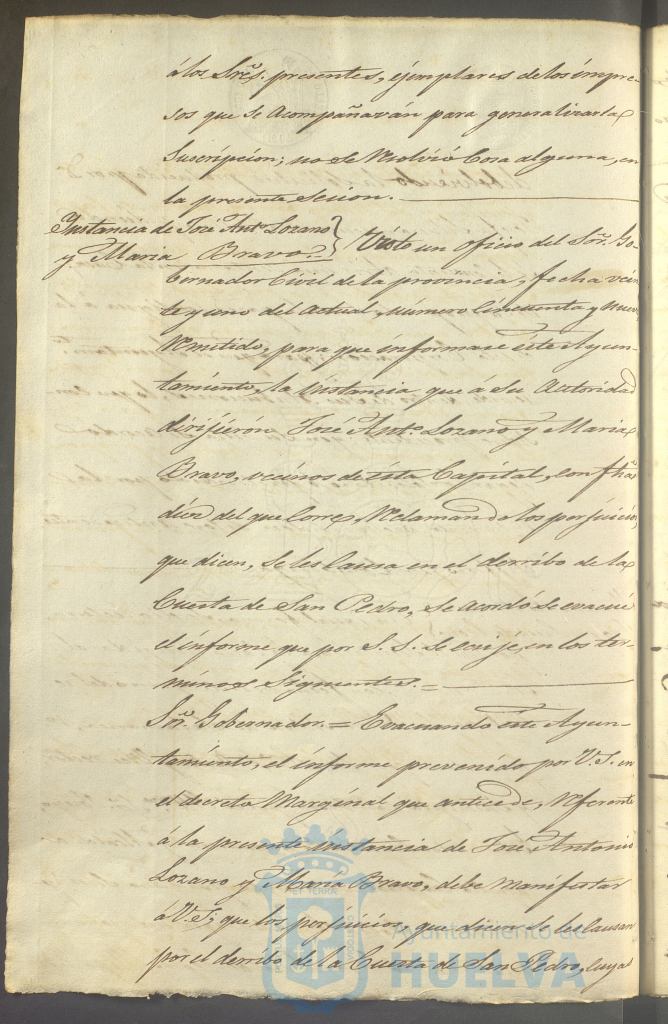 á los Sres. presentes, ejemplares de los impre-
sos que se acompañaván para generalizar la
Suscripcion; no se resolvió cosa alguna, en
la presente Secion.
Instancia de José Anto. Lozano
y Maria Bravo.
Visto un oficio del Sor. Go-
bernador Civil de la provincia, fecha vein-
te y uno del actual, número cincuenta y nueve
remitido, para que informase este Ayun-
tamiento, la instancia que á su Autoridad
dirijieron José Anto. Lozano y Maria
Bravo, vecinos de ésta Capital, con fha.
diez del que corre, reclamando los perjuicios
que dicen, se les causa en el derribo de la
Cuesta de San Pedro, se acordó se evacue
el informe que por S. S. se exije, en los ter-
minos siguientes. =
Sor. Gobernador. = Evacuando este Ayun-
tamiento, el informe prevenido por V. S. en
el decreto marginal que antecede, referente
á la presente instancia de José Antonio
Lozano y María Bravo, debe manifestar
á V. S; que los perjuicios, que dicen se les causan
por el derribo de la Cuesta de San Pedro, cuya
Ayuntamiento de
HUELVA